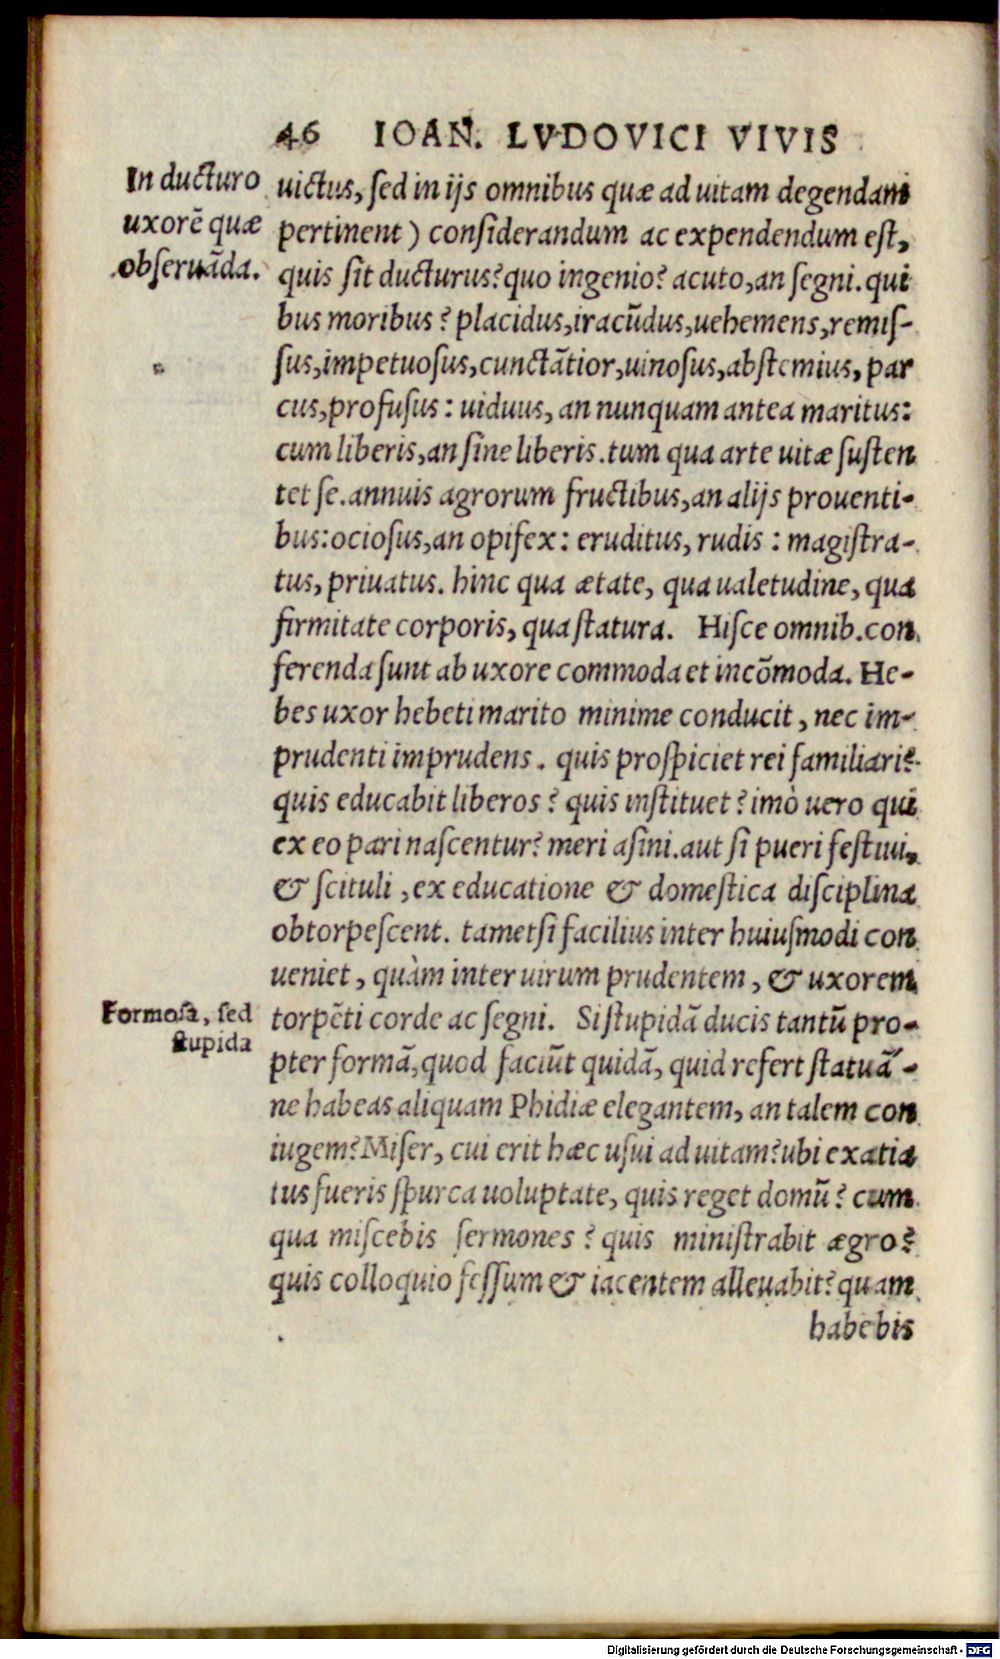 46 IOAN. LVDOVICI VIVIS
In ducturo
uxorē quæ
obseruāda.
uictus, sed in ijs omnibus quæ ad uitam degendam
pertinent) considerandum ac expendendum est,
quis sit ducturus? quo ingenio? acuto, an segni. qui
bus moribus? placidus, iracūdus, uehemens, remis-
sus, impetuosus, cunctātior, uinosus, abstemius, par
cus, profusus: uiduus, an nunquam antea maritus:
cum liberis, an sine liberis. tum qua arte uitæ susten
tet se. annuis agrorum fructibus, an alijs prouenti-
bus: ociosus, an opifex: eruditus, rudis: magistra-
tus, priuatus. hinc qua ætate, qua ualetudine, qua
firmitate corporis, qua statura. Hisce omnib. con
ferenda sunt ab uxore commoda et incōmoda. He-
bes uxor hebeti marito minime conducit, nec im-
prudenti imprudens. quis prospiciet rei familiari?
quis educabit liberos? quis instituet? imò uero qui
ex eo pari nascentur? meri asini. aut si pueri festiui,
& scituli, ex educatione & domestica disciplina
obtorpescent. tametsi facilius inter huiusmodi con
ueniet, quàm inter uirum prudentem, & uxorem
Formosa, sed
stupida
torpēti corde ac segni. Si stupidā ducis tantū pro-
pter formā, quod faciūt quidā, quid refert statuā-
ne habeas aliquam Phidiæ elegantem, an talem con
iugem? Miser, cui erit hæc usui ad uitam? ubi exatia
tus fueris spurca uoluptate, quis reget domū? cum
qua miscebis sermones? quis ministrabit ægro?
quis colloquio fessum & iacentem alleuabit? quam
habebis
Digitalisierung gefördert durch die Deutsche Forschungsgemeinschaft - DFG